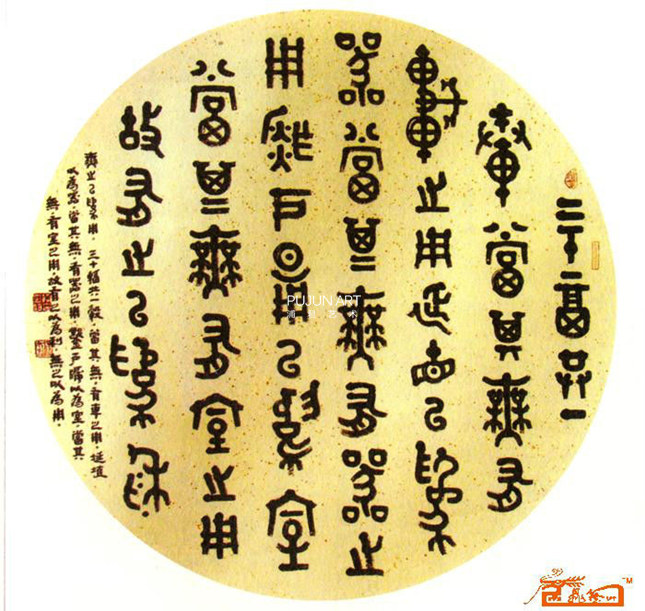 三十輻共一
轂當其無有
車之用埏埴以為
器當其無有器之
用鑿戶牖以為室
當其無有室之用
故有之以為利
無之以為用。三十輻共一轂，當其無，有車之用，埏埴
以為器，當其無，有器之用，鑿戶牖以為室，當其
無，有室之用，故有之以為利，無之以為用。
PUJUN ART
TM